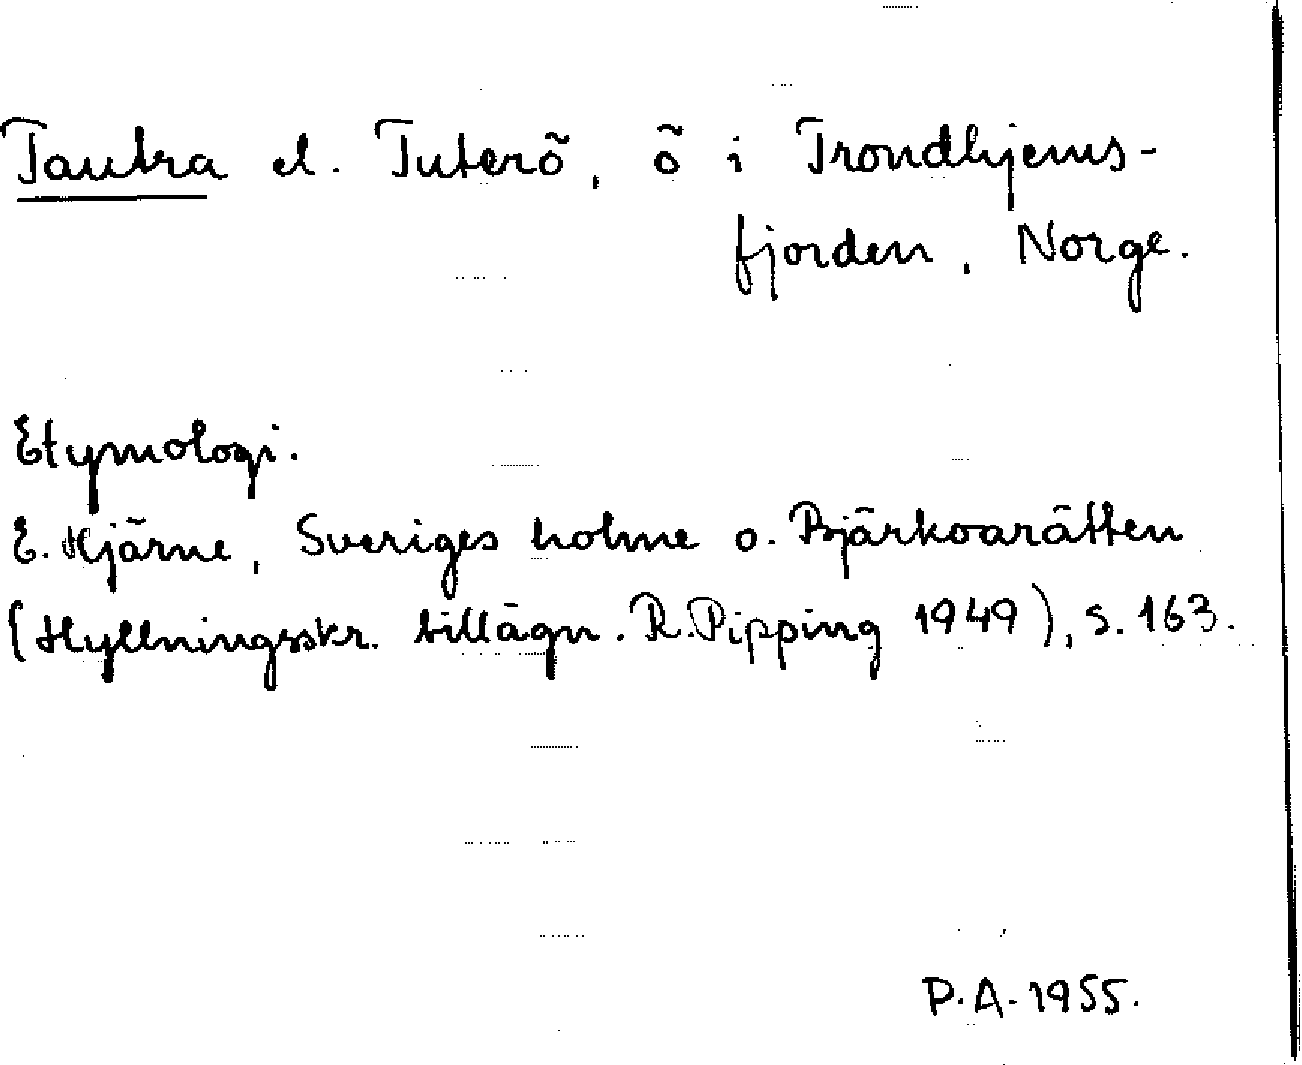 Tautra el. Tuterö, ö i Trondhjems-
fjorden, Norge.
Etymologi.
E. Hjärne, Sveriges holme o. Bjärkoarätten
(Hyllningsskr. tillägn. R. Pipping 1949), s. 163.
P.A. 1955.